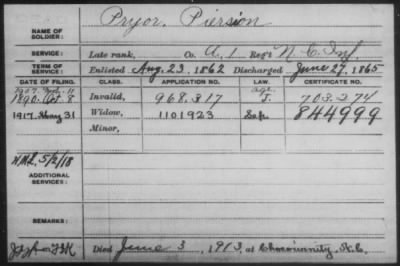 NAME OF SOLDIER: Pryor, Pierson
SERVICE: Late rank, Co. A, 1 Reg't N.C. Inf.
TERM OF SERVICE: Enlisted Aug. 23, 1862 Discharged June 27, 1865
DATE OF FILING. CLASS. APPLICATION NO. LAW. CERTIFICATE NO.
1890. Oct. 8 Invalid, 968.317 J. 703.274
1917. May 31 Widow, 1101923 Sep 844999
Minor,
5/2/18
ADDITIONAL SERVICES:
REMARKS:
Died June 3, 1913, at Chocowinity, N.C.